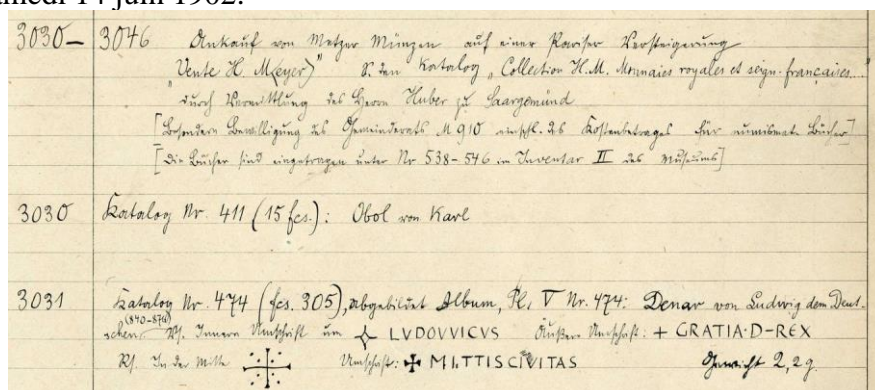 amedi 14 juin 1902.
3030– 3046 Ankauf von Metzer Münzen auf einer Pariser Versteigerung
"Vente H. M(eyer)" S. den Katalog „Collection H.M. Monnaies royales et seign. françaises..."
durch Vermittlung des Herrn Huber zu Saargemünd
[Besondern Bewilligung des Gemeinderats M 910 einschl. des Kostenbetrages für numismat. Bücher]
[Die Bücher sind eingetragen unter Nr 538–546 im Inventar II des Museums]
3030 Katalog Nr. 411 (15 fcs.): Obol von Karl
3031 Katalog Nr. 474 (fcs. 305), abgebildet Album, Pl. V Nr. 474: Denar von Ludwig dem Deut-
schen (840–876) Vs. Innere Umschrift um LVDOVVICVS Äußere Umschrift: + GRATIA·D–REX
Rs. In der Mitte Umschrift: ✠ MI.TTISCIVITAS Gewicht 2,2 g.